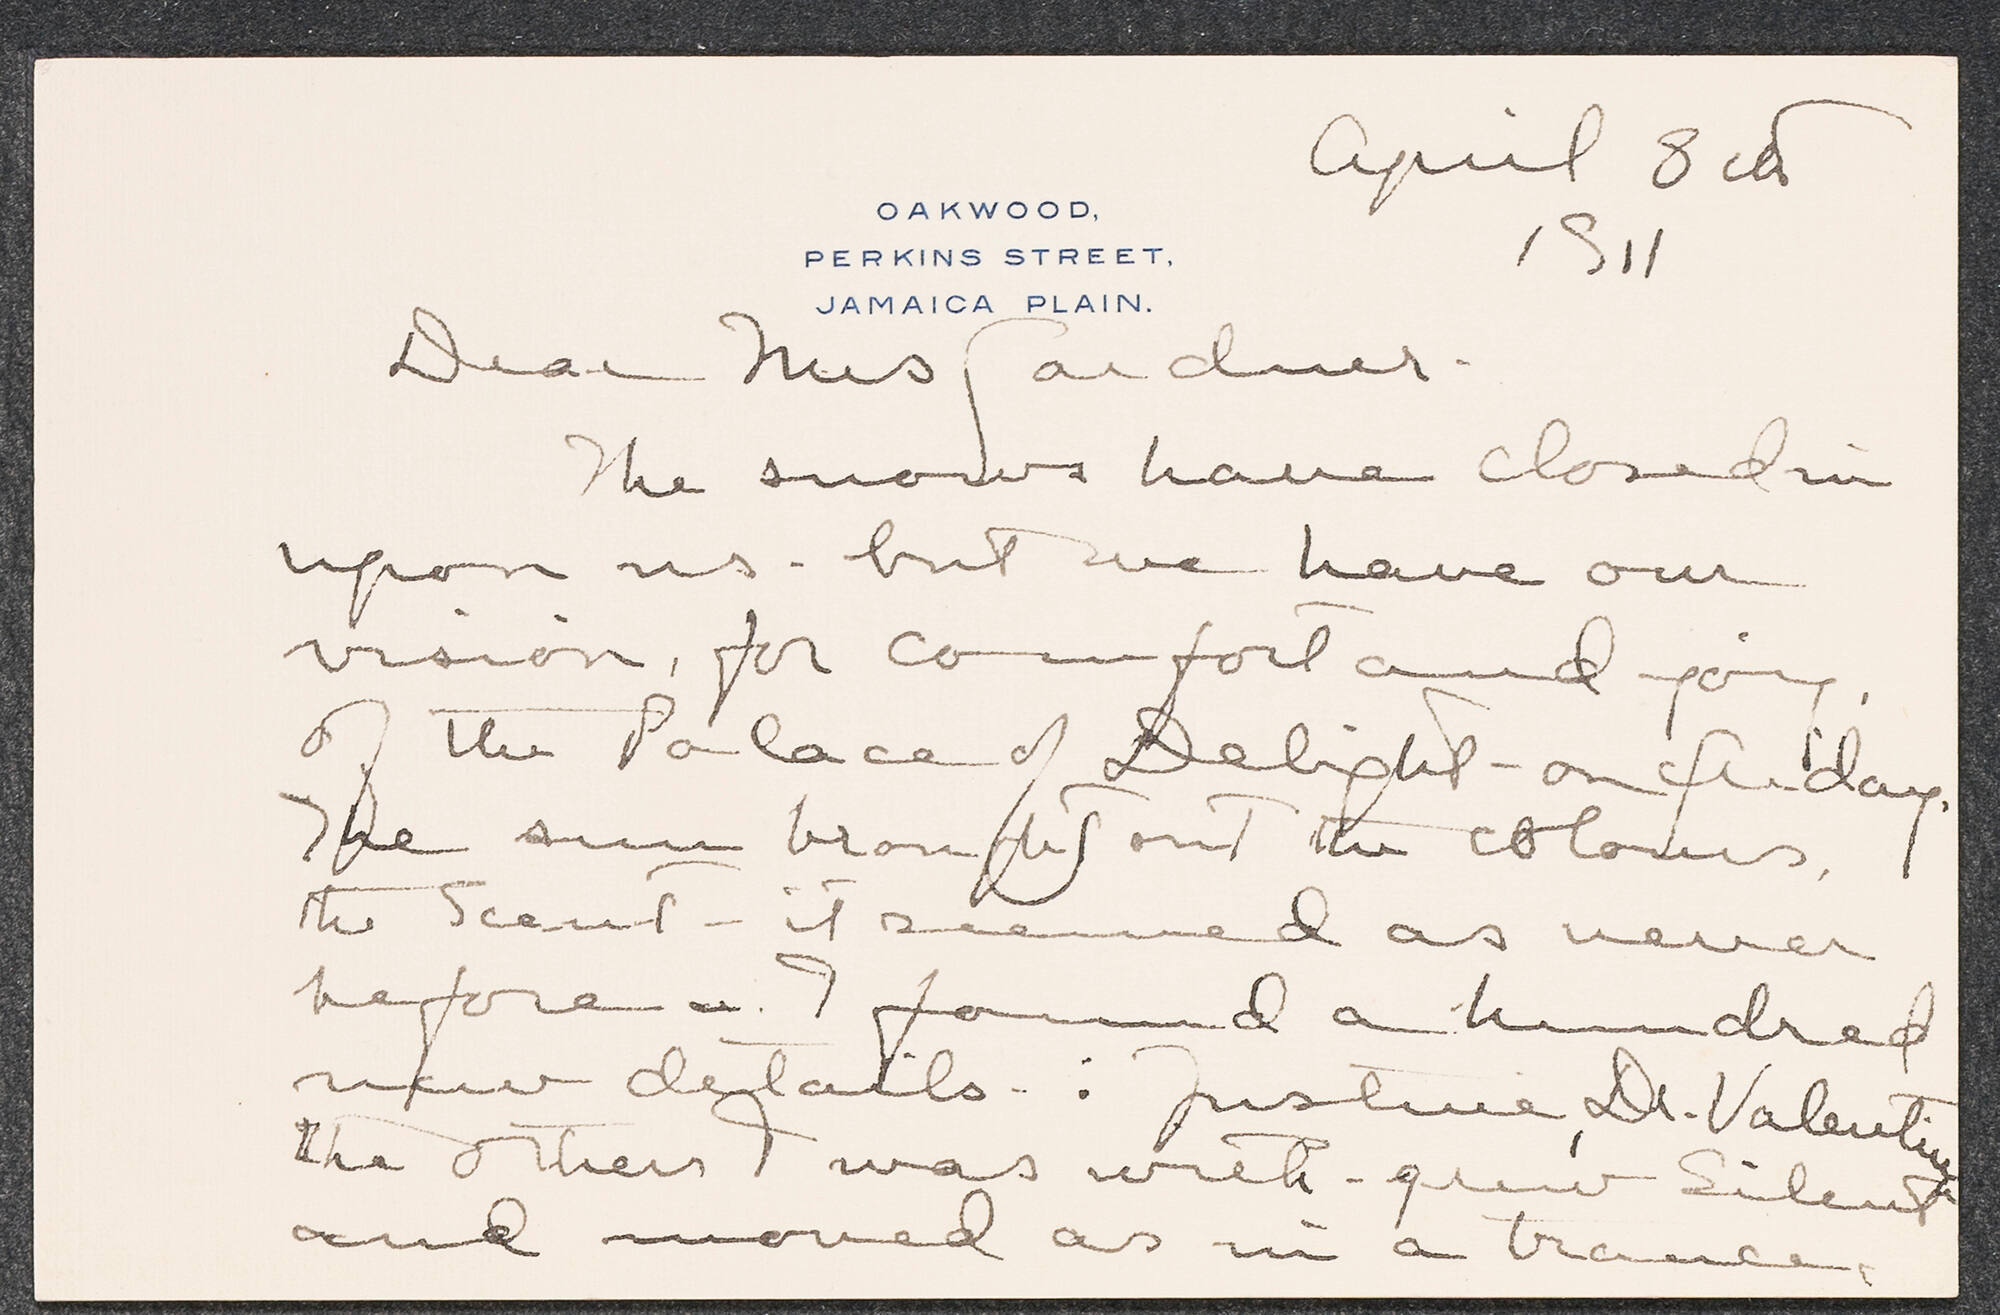 April 8th
1911
OAKWOOD,
PERKINS STREET,
JAMAICA PLAIN.
Dear Mrs Gardner -
The snows have closed in
upon us - but we have our
vision, for comfort and joy,
of the Palace of Delight - on Friday.
The sun brought out the colours,
the scent - it seemed as never
before -. I found a hundred
new details - : Justine, Dr. Valentine
the others I was with - grew silent
and moved as in a trance,